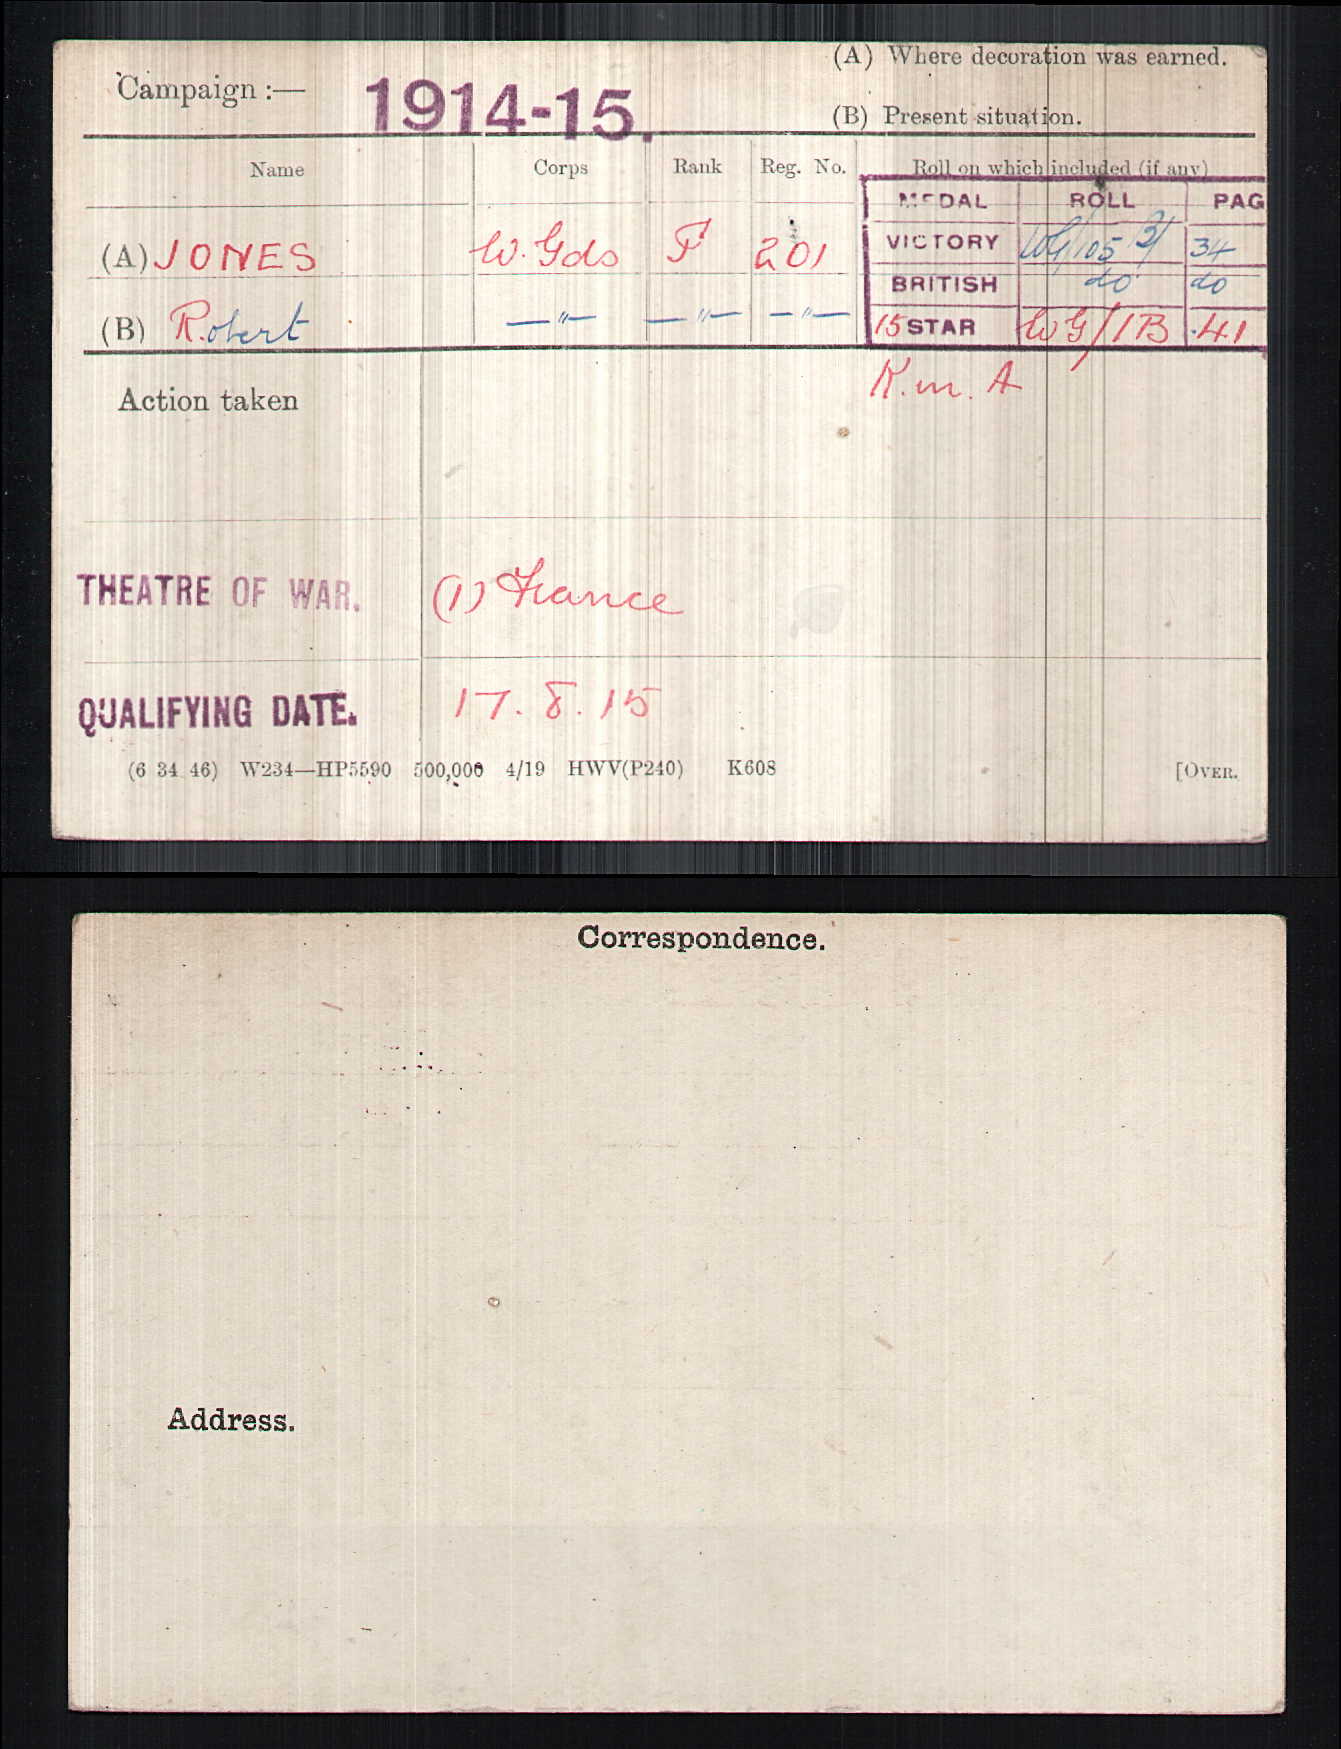 (A) Where decoration was earned.
Campaign :— 1914-15.
(B) Present situation.
Name Corps Rank Reg. No. Roll on which included (if any)
MEDAL ROLL PAG
(A) JONES W. Gds F 201 VICTORY WG/105 34
BRITISH do do
(B) Robert —"— —"— —"— 15 STAR WG/1B 41
Action taken K. in. A
THEATRE OF WAR. (1) France
QUALIFYING DATE. 17. 8. 15
(6 34 46) W234—HP5590 500,000 4/19 HWV(P240) K608 [OVER.
Correspondence.
Address.